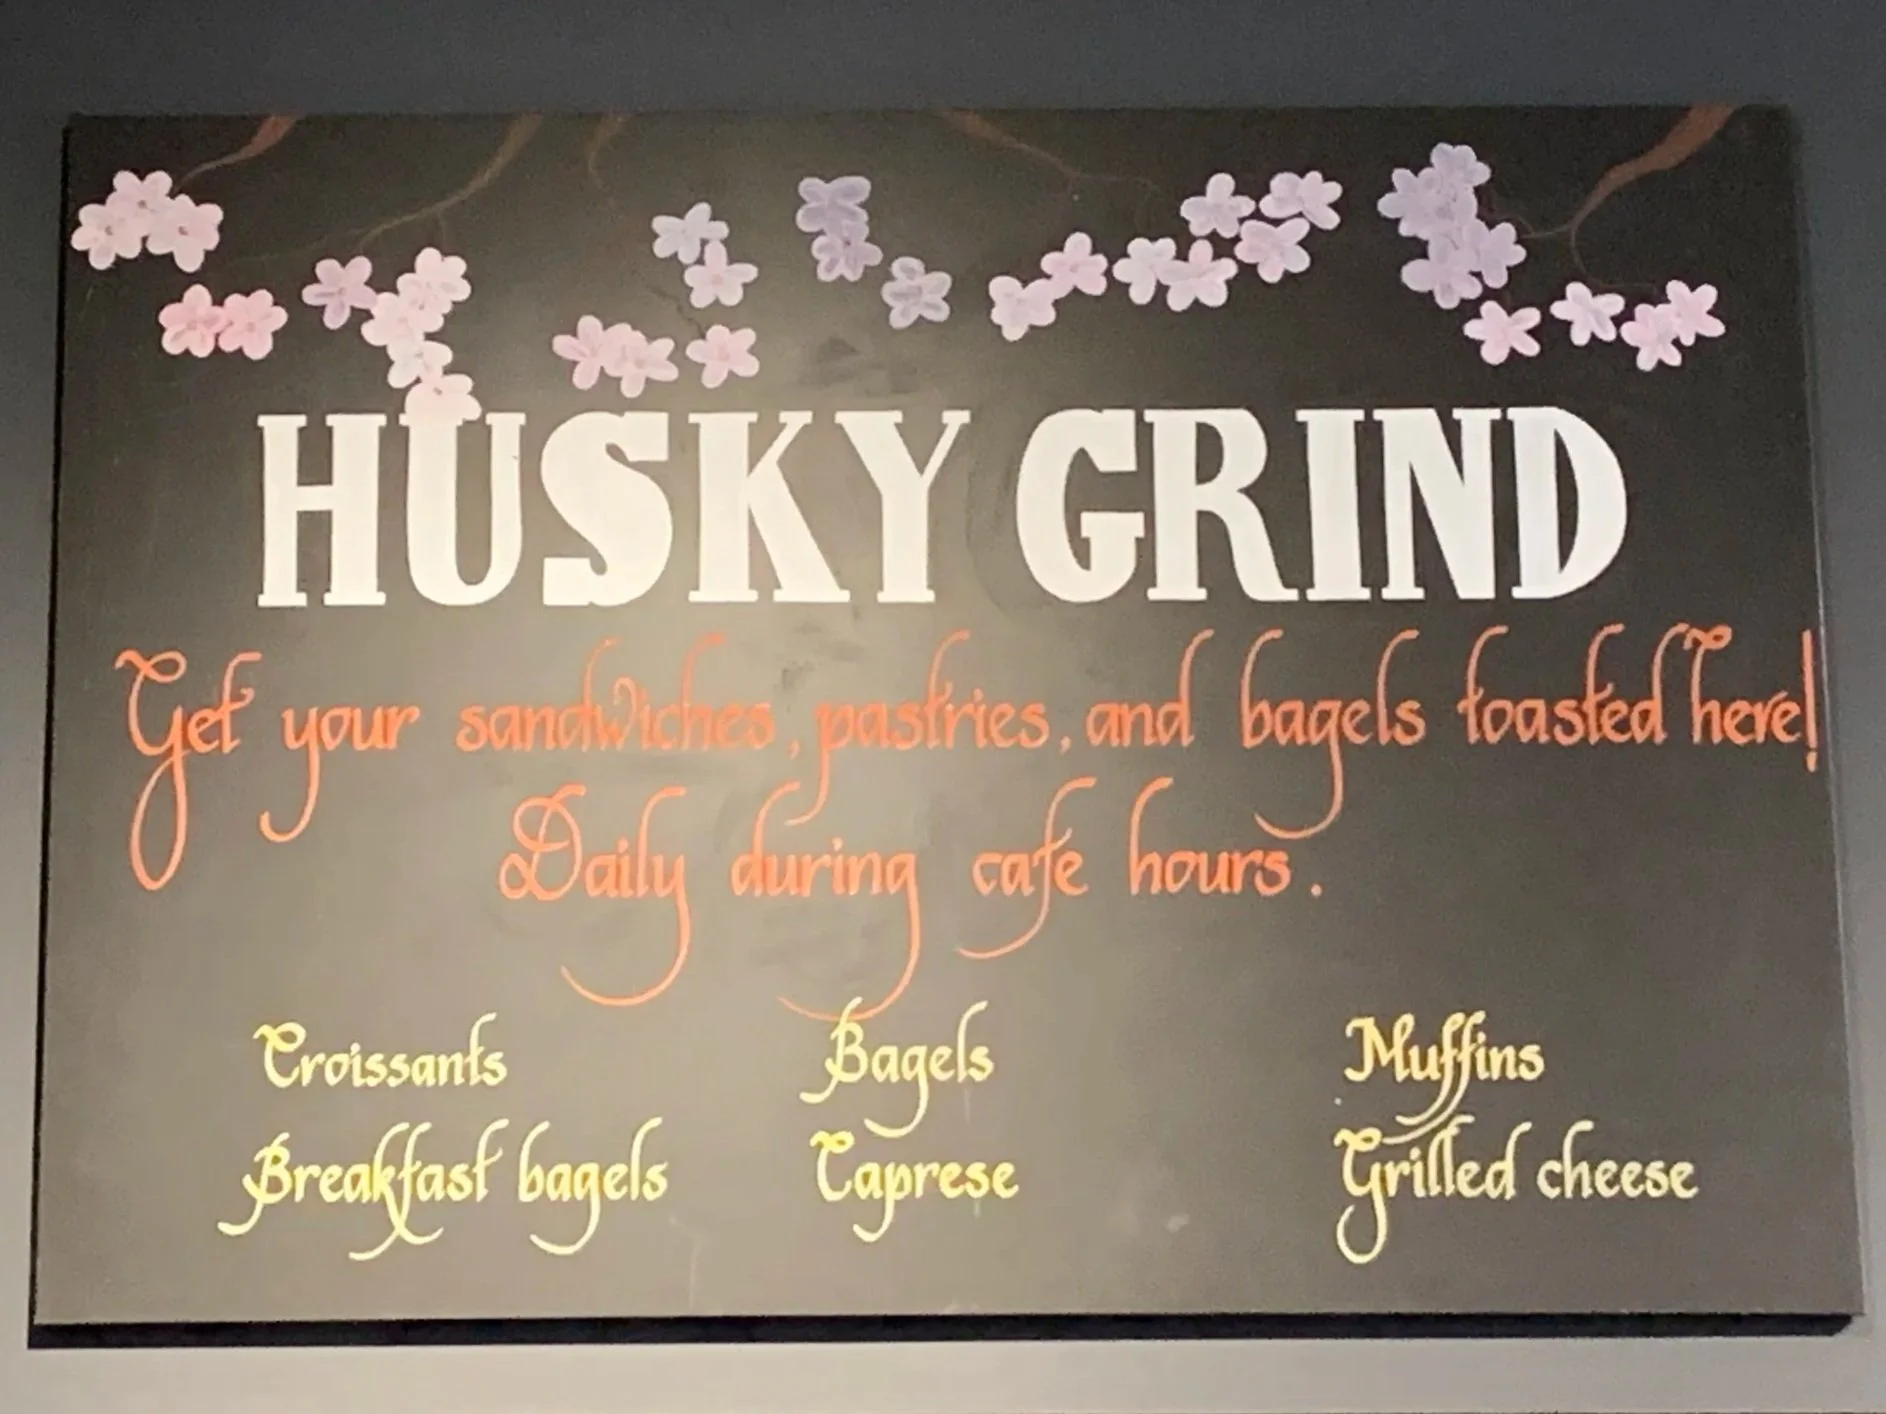 HUSKY GRIND
Get your sandwiches, pastries, and bagels toasted here!
Daily during cafe hours.
Croissants Bagels Muffins
Breakfast bagels Caprese Grilled cheese